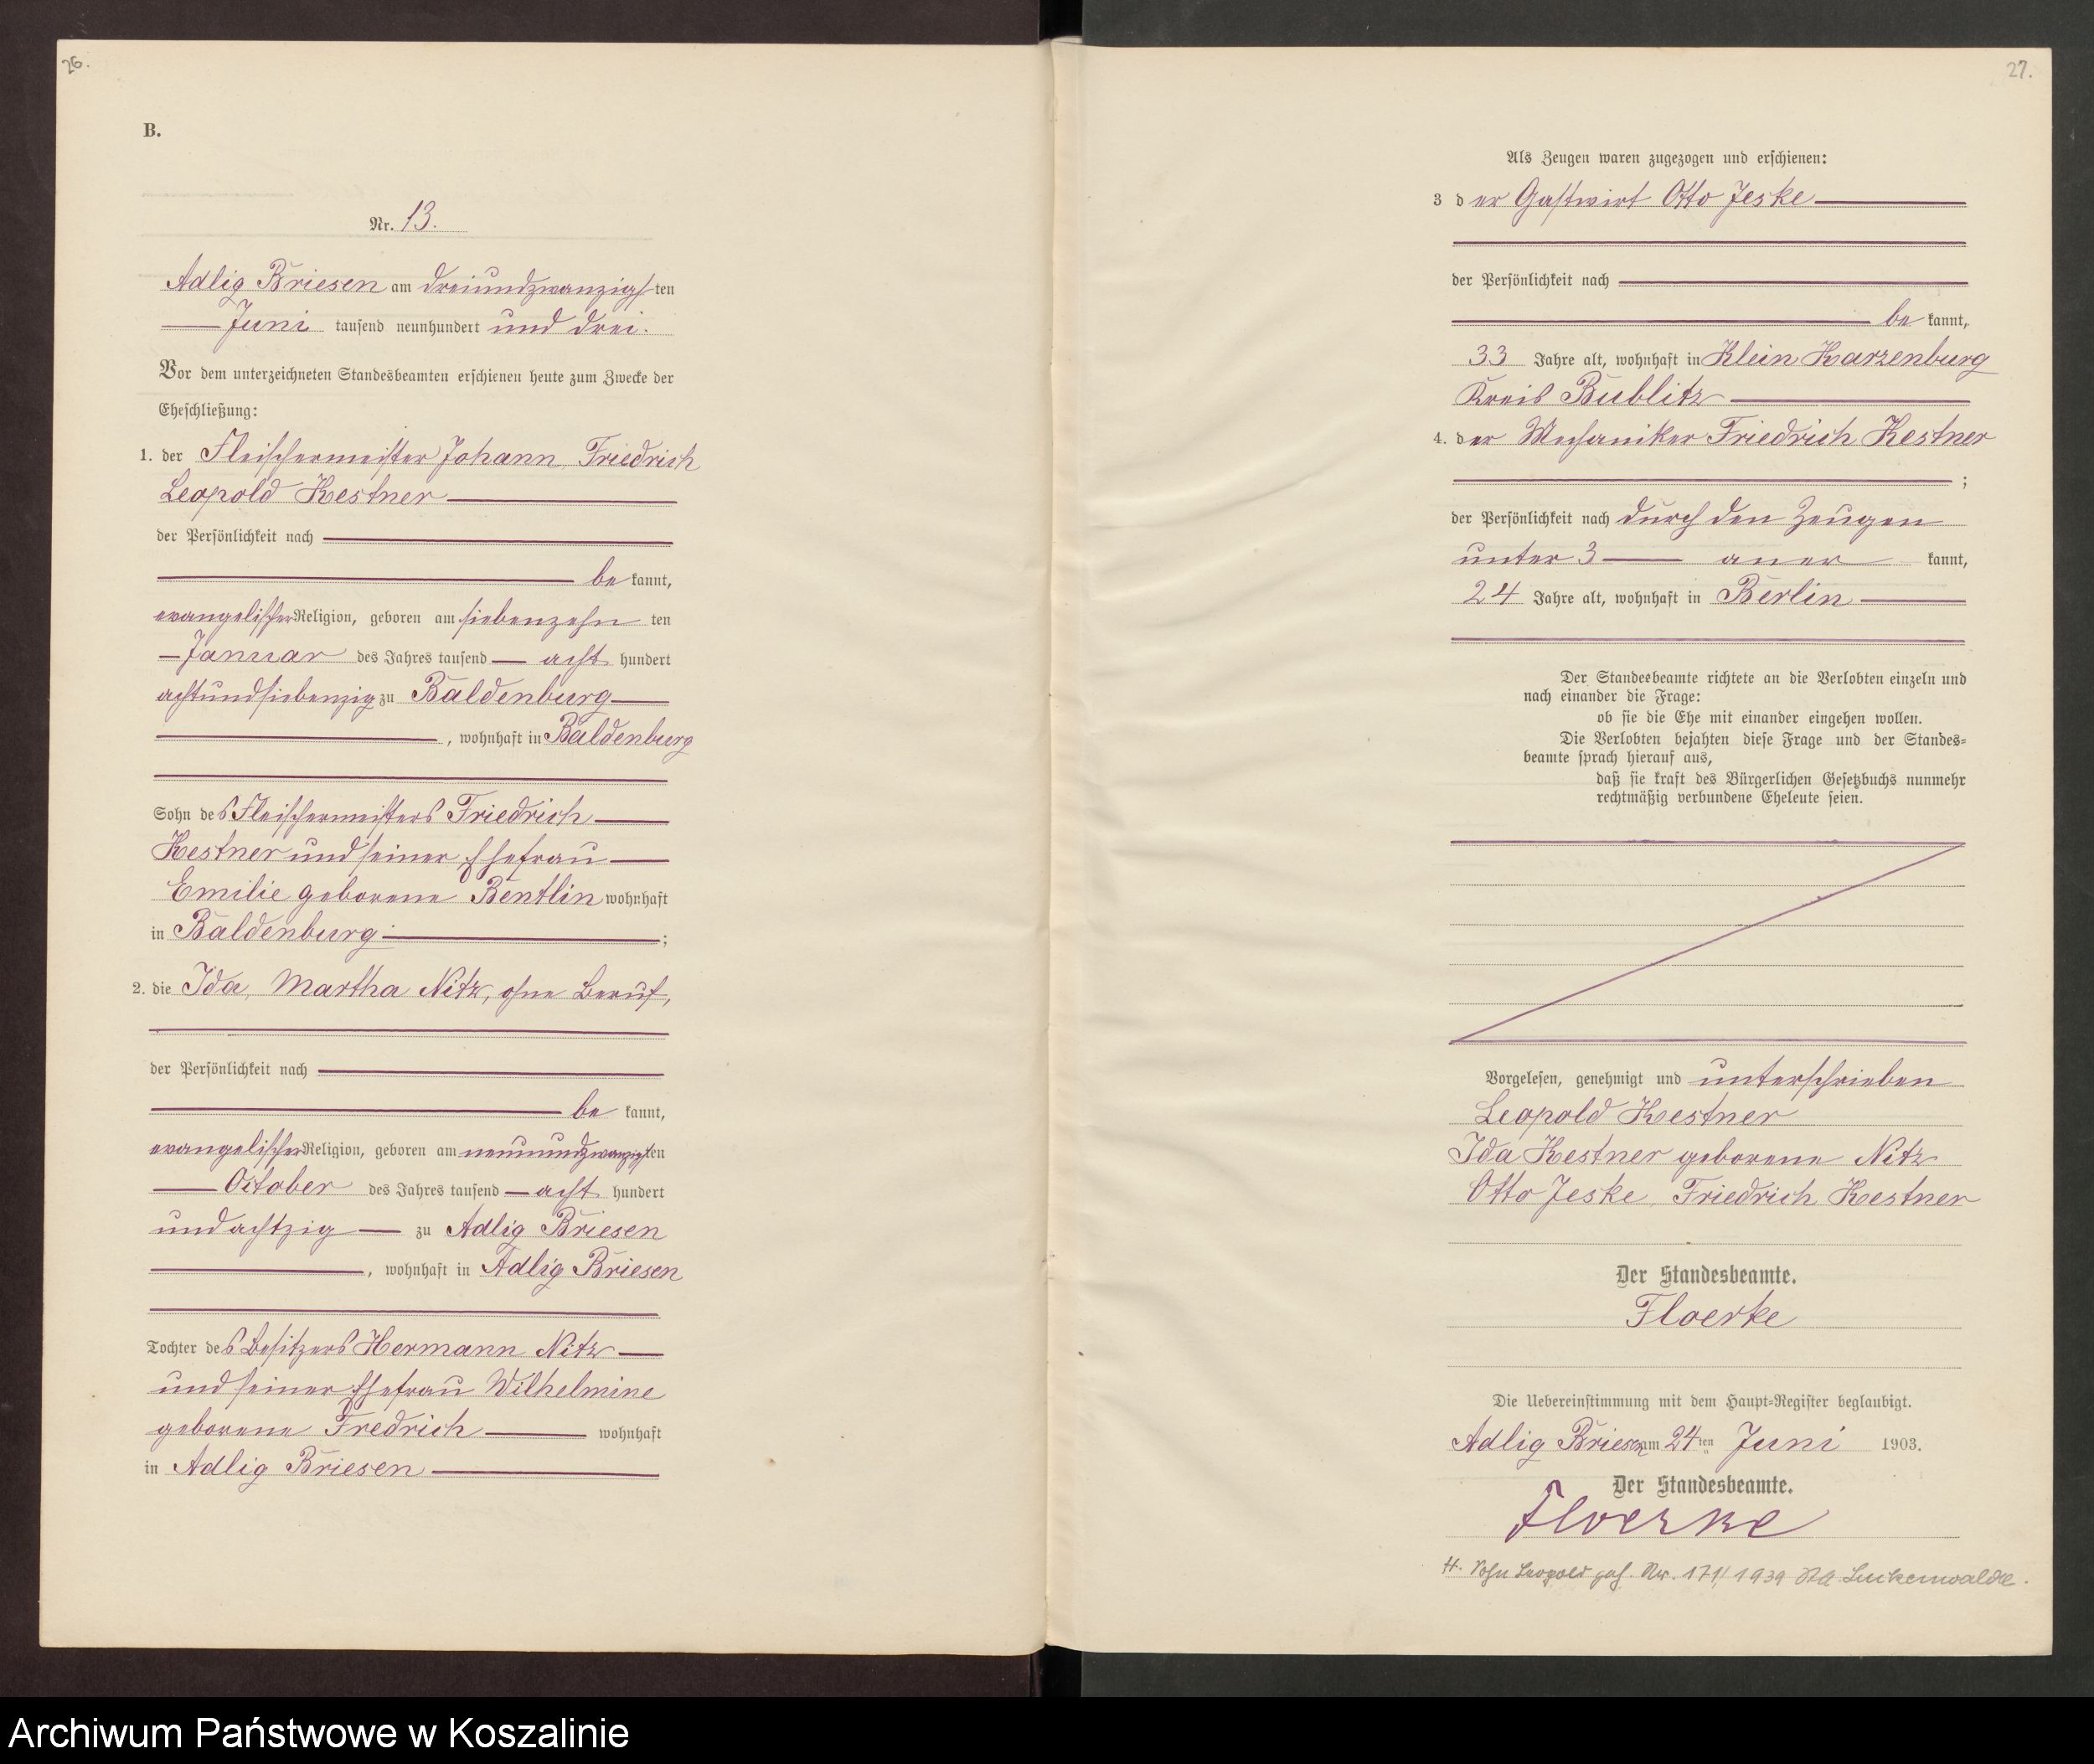 26.
B.
Nr. 13.
Adlig Briesen am dreiundzwanzigsten
Juni tausend neunhundert und drei.
Vor dem unterzeichneten Standesbeamten erschienen heute zum Zwecke der
Eheschließung:
1. der Fleischermeister Johann Friedrich
Leopold Kestner
der Persönlichkeit nach
be kannt,
evangelischer Religion, geboren am siebenzehn ten
Januar des Jahres tausend acht hundert
achtundsiebenzig zu Baldenburg
, wohnhaft in Baldenburg
Sohn des Fleischermeisters Friedrich
Kestner und seiner Ehefrau
Emilie geborene Bentlin wohnhaft
in Baldenburg ;
2. die Ida, Martha Nitz, ohne Beruf,
der Persönlichkeit nach
be kannt,
evangelischer Religion, geboren am neunundzwanzigsten
October des Jahres tausend acht hundert
undachtzig zu Adlig Briesen
, wohnhaft in Adlig Briesen
Tochter des Besitzers Hermann Nitz
und seiner Ehefrau Wilhelmine
geborene Fredrich wohnhaft
in Adlig Briesen
27.
Als Zeugen waren zugezogen und erschienen:
3 der Gastwirt Otto Jeske
der Persönlichkeit nach
be kannt,
33 Jahre alt, wohnhaft in Klein Karzenburg
Kreis Bublitz
4. der Mechaniker Friedrich Kestner
;
der Persönlichkeit nach durch den Zeugen
unter 3 aner kannt,
24 Jahre alt, wohnhaft in Berlin
Der Standesbeamte richtete an die Verlobten einzeln und
nach einander die Frage:
ob sie die Ehe mit einander eingehen wollen.
Die Verlobten bejahten diese Frage und der Standes=
beamte sprach hierauf aus,
daß sie kraft des Bürgerlichen Gesetzbuchs nunmehr
rechtmäßig verbundene Eheleute seien.
Vorgelesen, genehmigt und unterschrieben
Leopold Kestner
Ida Kestner geborene Nitz
Otto Jeske, Friedrich Kestner
Der Standesbeamte.
Floerke
Die Uebereinstimmung mit dem Haupt=Register beglaubigt.
Adlig Briesen am 24ten Juni 1903.
Der Standesbeamte.
Floerke
Sohn Leopold Nr. 171/1939 StA Luckenwalde.
Archiwum Państwowe w Koszalinie